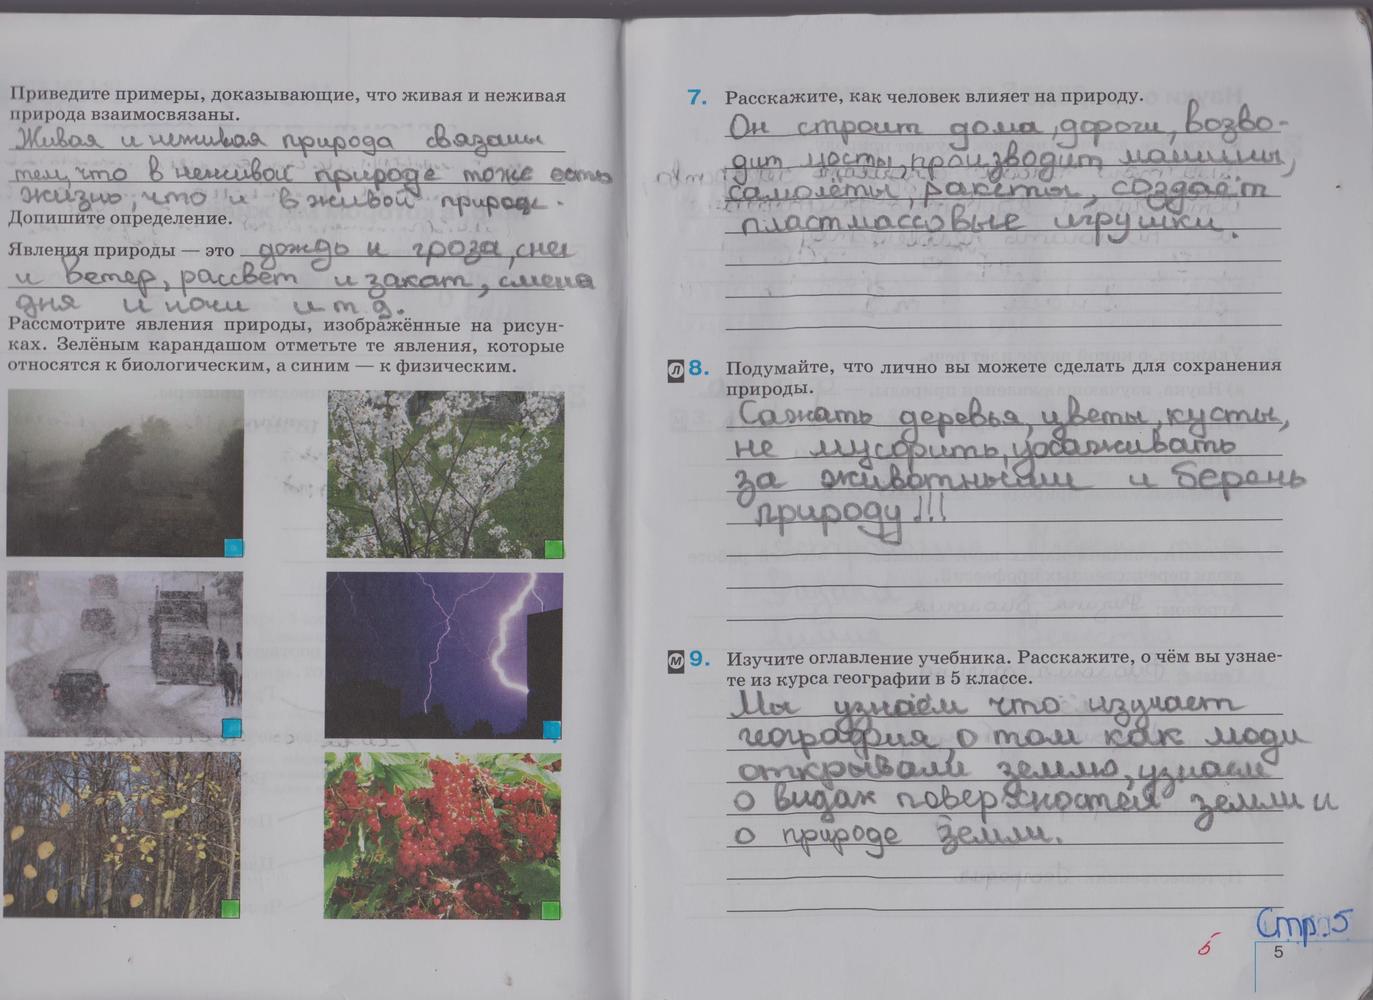 Приведите примеры, доказывающие, что живая и неживая
природа взаимосвязаны.
Живая и неживая природа связаны
тем, что в неживой природе тоже есть
жизнь, что и в живой природе.
Допишите определение.
Явления природы — это дождь и гроза, снег
и ветер, рассвет и закат, смена
дня и ночи и т. д.
Рассмотрите явления природы, изображённые на рисун-
ках. Зелёным карандашом отметьте те явления, которые
относятся к биологическим, а синим — к физическим.
7. Расскажите, как человек влияет на природу.
Он строит дома, дороги, возво-
дит мосты, производит машины,
самолёты, ракеты, создаёт
пластмассовые игрушки.
Л 8. Подумайте, что лично вы можете сделать для сохранения
природы.
Сажать деревья, цветы, кусты,
не мусорить,
за животными и беречь
природу!!!
М 9. Изучите оглавление учебника. Расскажите, о чём вы узнае-
те из курса географии в 5 классе.
Мы узнаём что изучает
география, о том как люди
открывали землю, узнаем
о видах поверхностей земли и
о природе Земли.
Стр. 5
5
5